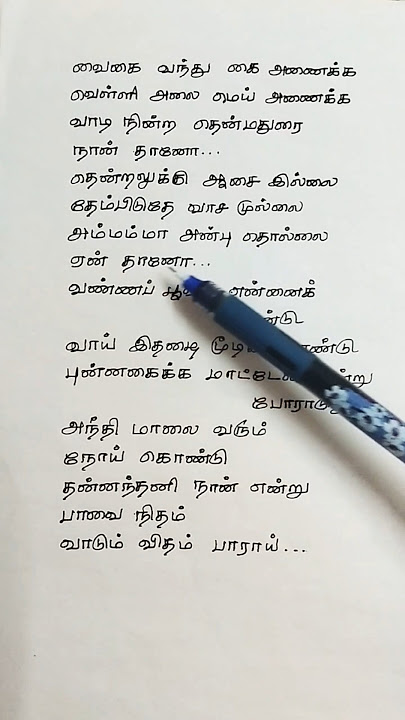 வைகை வந்து கை அணைக்க
வெள்ளி அலை மெய் அணைக்க
வாடி நின்ற தென்மதுரை
நான் தானோ...
தென்றலுக்கு ஆசை இல்லை
தேம்பிடுதே வாச முல்லை
அம்மம்மா அன்பு தொல்லை
ஏன் தானோ...
வண்ணப் என்னைக்
வாய் இதழை
புன்னகைக்க
அந்தி மாலை வரும்
நோய் கொண்டு
தன்னந்தனி நான் என்று
பாவை நிதம்
வாடும் விதம் பாராய்...